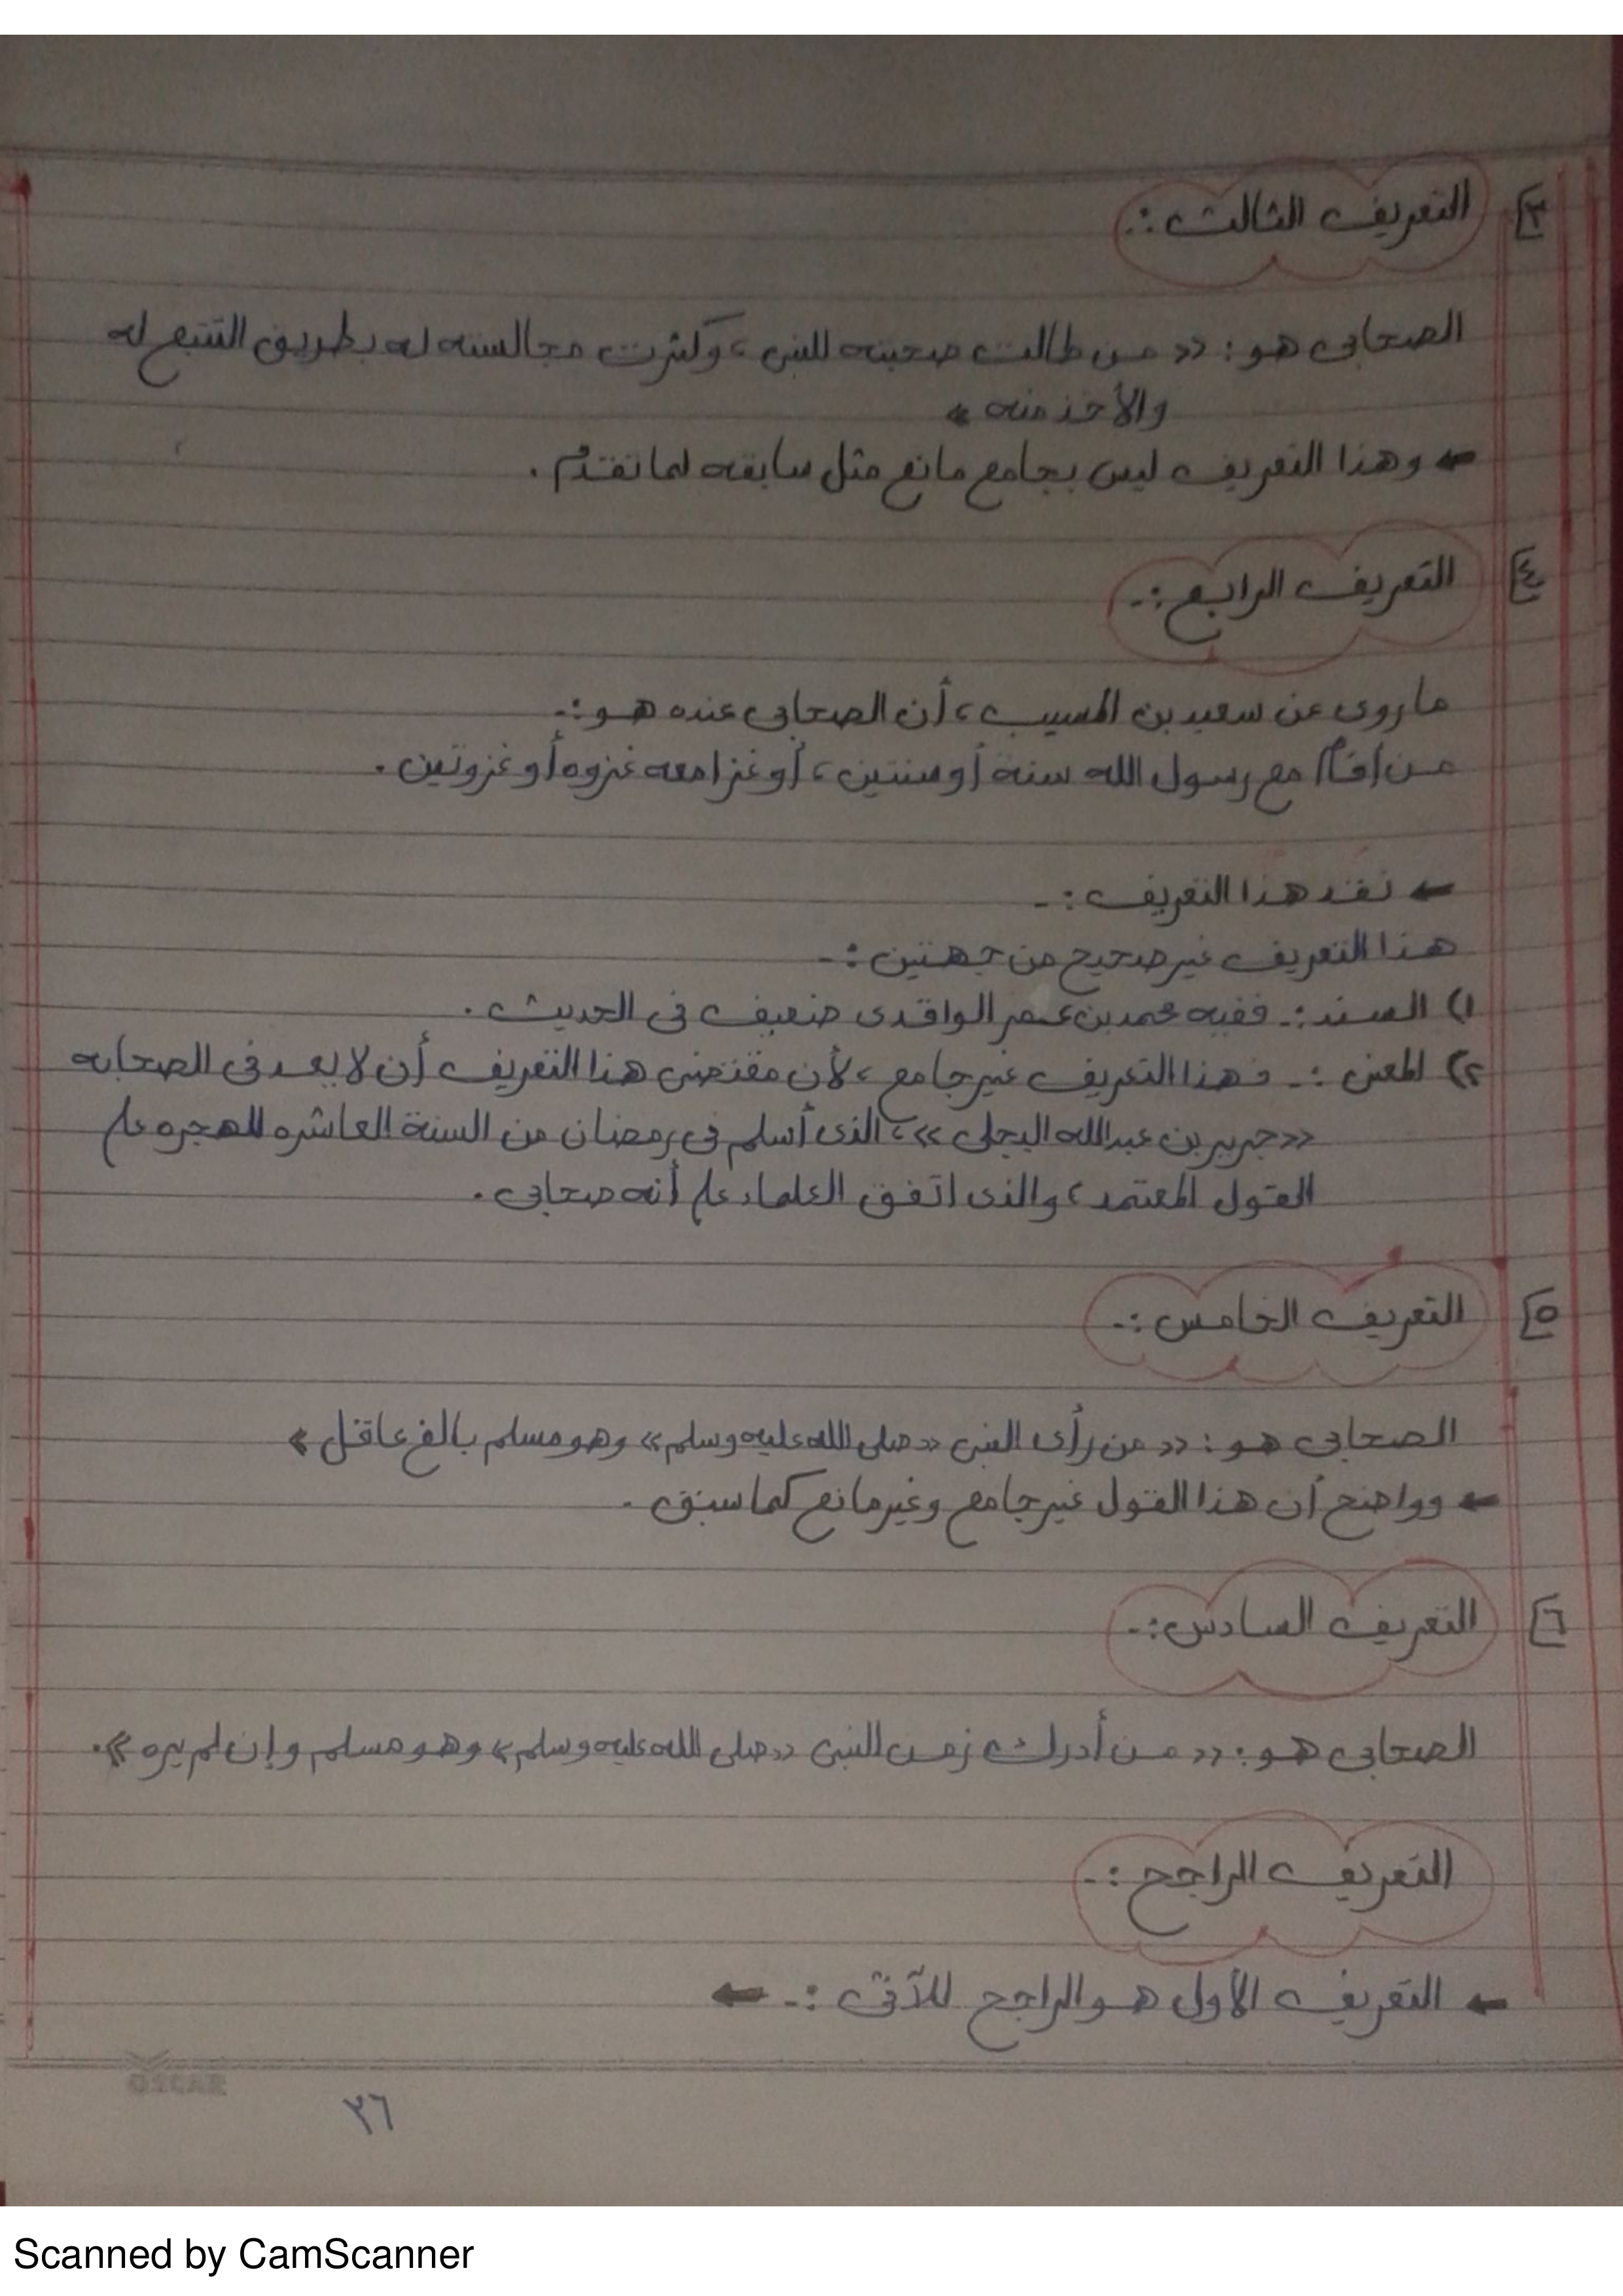 ٣] التعريف الثالث :.
الصحابى هو : << من طالت صحبته للنبى ، وكثرت مجالسته له بطريق التتبع له
والأخذ منه >>
← وهذا التعريف ليس بجامع مانع مثل سابقه لما تقدم .
٤] التعريف الرابع :-
ما روى عن سعيد بن المسيب ، أن الصحابى عنده هو :-
من أقام مع رسول الله سنة أو سنتين ، أو غزا معه غزوه أو غزوتين .
← نقد هذا التعريف :-
هذا التعريف غير صحيح من جهتين :-
١) السند :- ففيه محمد بن عمر الواقدى ضعيف فى الحديث .
٢) المعنى :- فهذا التعريف غير جامع ، لأن مقتضى هذا التعريف أن لا يعد فى الصحابه
<< جرير بن عبدالله البجلى >> ، الذى أسلم فى رمضان من السنة العاشره للهجره على
القول المعتمد ، والذى اتفق العلماء على أنه صحابى .
٥] التعريف الخامس :-
الصحابى هو : << من رأى النبى << صلى الله عليه وسلم >> وهو مسلم بالغ عاقل >>
← وواضح أن هذا القول غير جامع وغير مانع كما سبق .
٦] التعريف السادس :-
الصحابى هو : << من أدرك زمن النبى << صلى الله عليه وسلم >> وهو مسلم وإن لم يره >> .
التعريف الراجح :-
← التعريف الأول هو الراجح للآتى :- ←
OSCAR
٣٦
Scanned by CamScanner